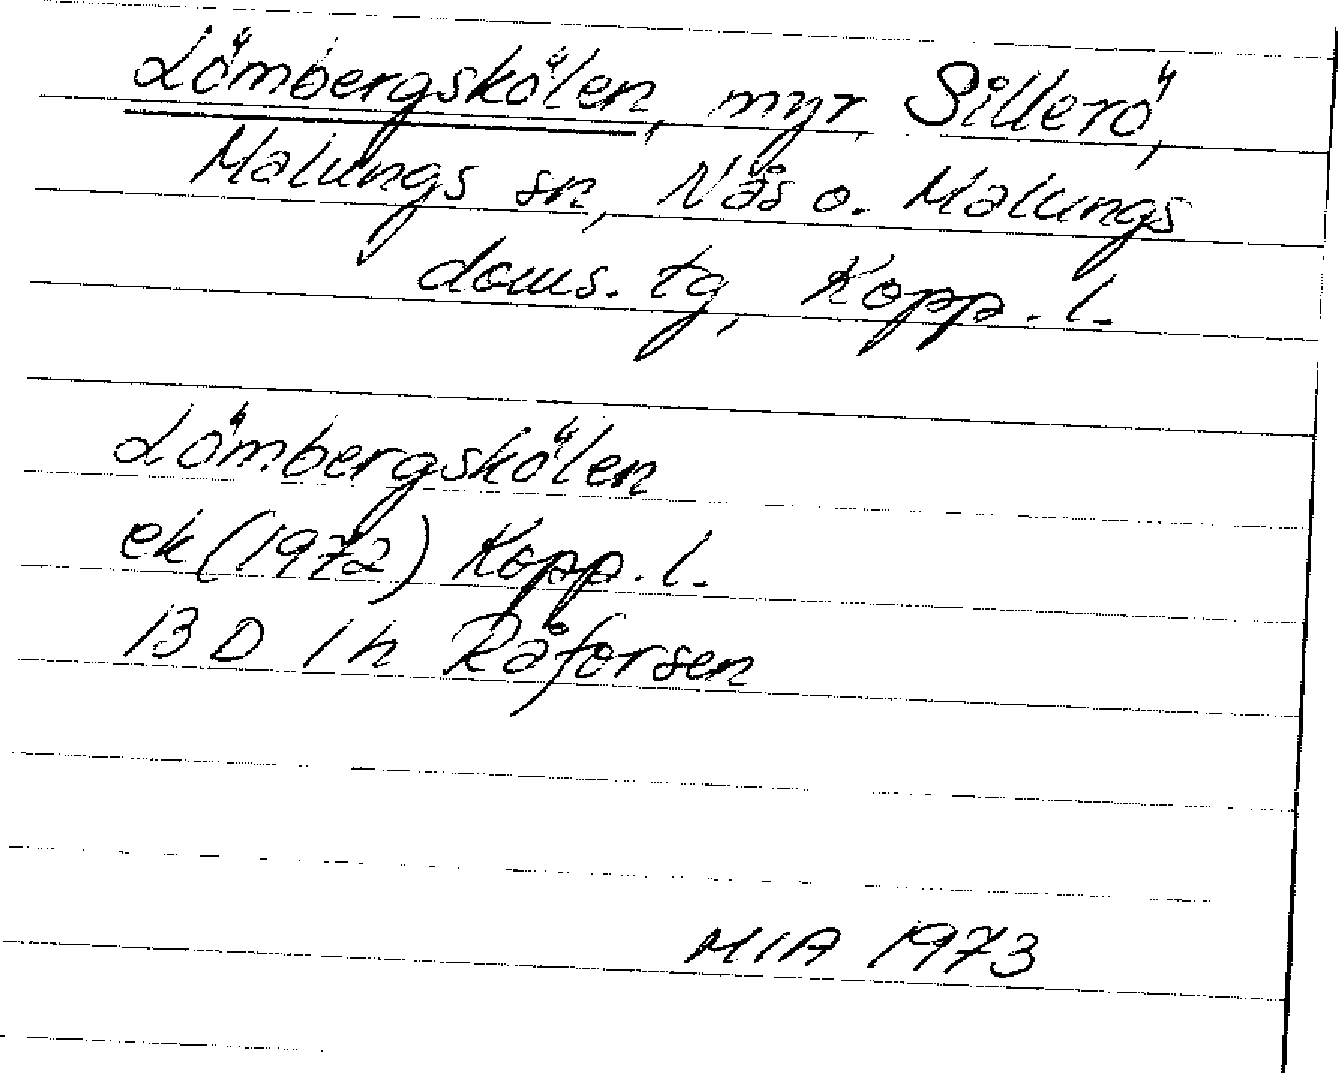 Lömbergskölen, myr, Sillerö,
Malungs sn, Nås o. Malungs
doms. tg, Kopp. l.
Lömbergskölen
ek (1972) Kopp. l.
13 D 1 h Råforsen
MIA 1973